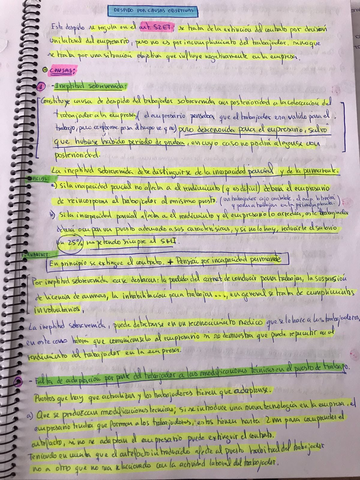 DESPIDO POR CAUSAS OBJETIVAS
Este despido se regula en el art. 52 ET: se trata de la extinción del contrato por decisión
unilateral del empresario, pero no es por incumplimiento del trabajador, sino que
se trata por una situación objetiva que influye negativamente en la empresa.
CAUSAS:
- Ineptitud sobrevenida:
Constituye causa de despido del trabajador sobrevenida con posterioridad a la colocación del
trabajador en la empresa, el empresario pensaba que el trabajador era válido para el
trabajo, pero conforme pasa el tiempo se ve pero desconocida para el empresario, salvo
que hubiese habido periodo de prueba, en cuyo caso no podrá alegarse con
posterioridad.
La ineptitud sobrevenida debe distinguirse de la incapacidad parcial y de la permanente.
a) Si la incapacidad parcial no afecta al rendimiento deberá el empresario
de reincorporar al trabajador al mismo puesto
b) Si la incapacidad parcial afecta al rendimiento y el empresario lo acredita, el trabajador
un puesto adecuado a sus características, y si no lo hay, reducirle el salario
en 25% respetando siempre el SMI
En principio se extingue el contrato. + Pensión por incapacidad permanente
Por ineptitud sobrevenida cabe destacar: la pérdida del carnet de conducir para trabajar, la suspensión
de licencia de armas, la inhabilitación para trabajar..., en general se trata de cumplimientos
involuntarios.
La ineptitud sobrevenida, puede detectarse en un reconocimiento médico que se le hace a los trabajadores,
en este caso tienen que comunicárselo al empresario si se demuestra que puede repercutir en el
rendimiento del trabajador en la empresa.
- Falta de adaptación por parte del trabajador a las modificaciones técnicas en el puesto de trabajo.
Puestos que hay que actualizar y los trabajadores tienen que adaptarse.
a) Que se produzcan modificaciones técnicas; si se introduce una nueva tecnología en la empresa, el
empresario tendrá que formar a los trabajadores, estos tienen hasta 2 meses para comprender el
artefacto, si no se adapta el empresario puede extinguir el contrato.
Teniendo en cuenta que el artefacto introducido afecte al puesto habitual del trabajador
no a otro que no sea relacionado con la actividad laboral del trabajador.